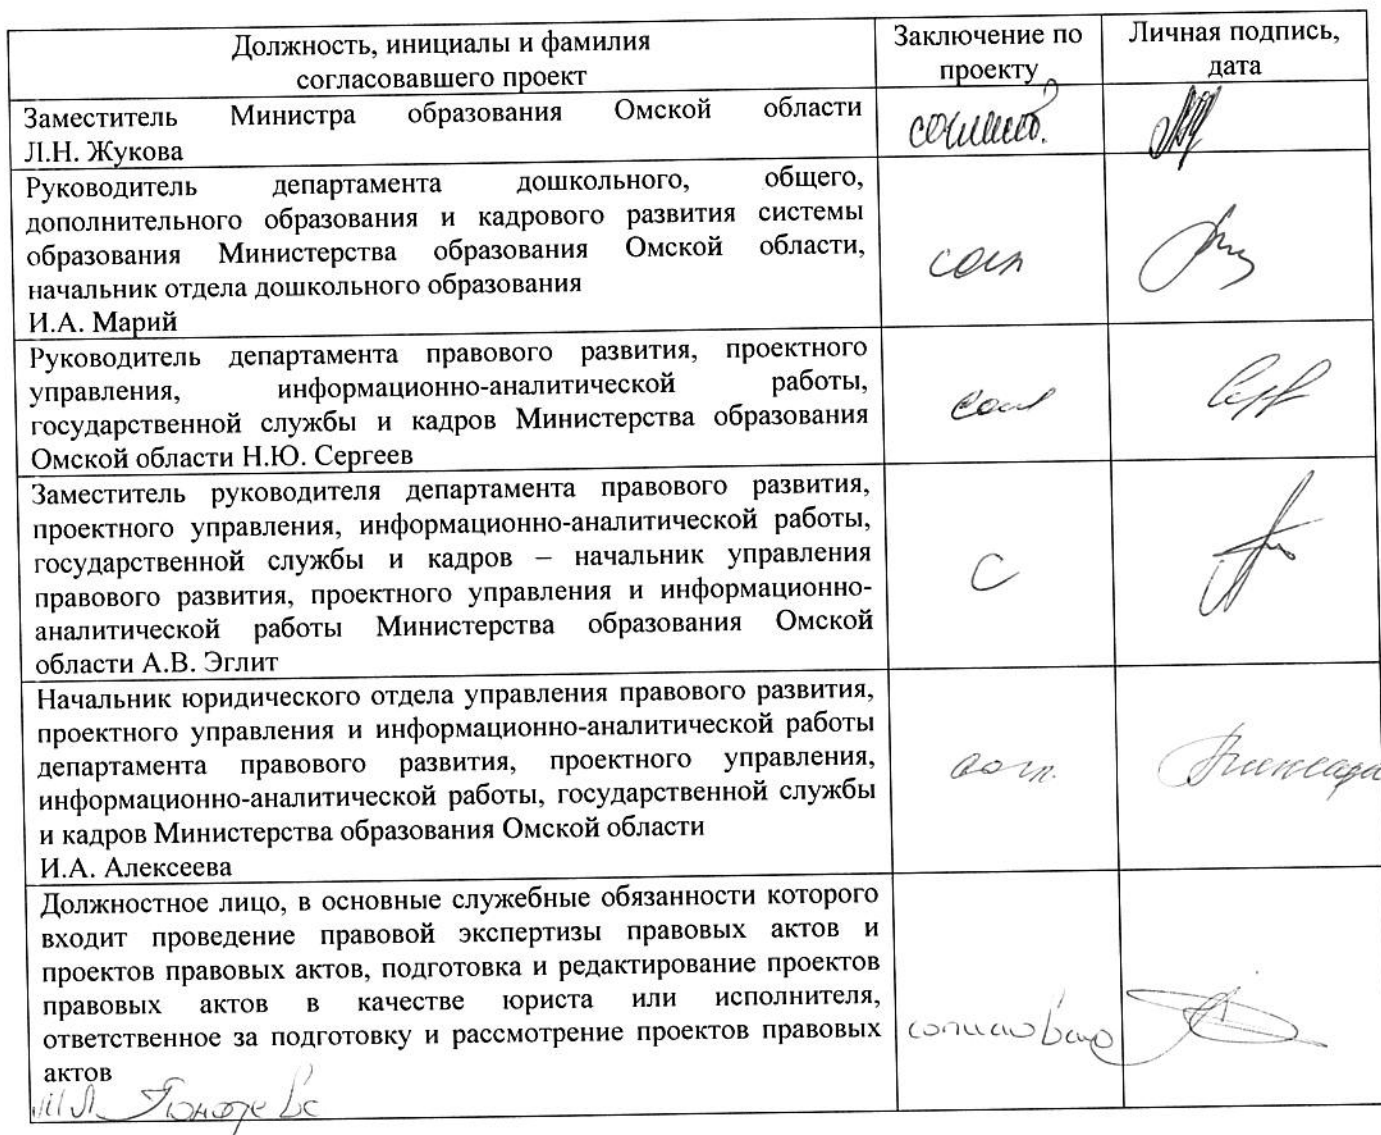 Должность, инициалы и фамилия
согласовавшего проект
Заключение по
проекту
Личная подпись,
дата
Заместитель Министра образования Омской области
Л.Н. Жукова
Руководитель департамента дошкольного, общего,
дополнительного образования и кадрового развития системы
образования Министерства образования Омской области,
начальник отдела дошкольного образования
И.А. Марий
согл
Руководитель департамента правового развития, проектного
управления, информационно-аналитической работы,
государственной службы и кадров Министерства образования
Омской области Н.Ю. Сергеев
согл
Заместитель руководителя департамента правового развития,
проектного управления, информационно-аналитической работы,
государственной службы и кадров – начальник управления
правового развития, проектного управления и информационно-
аналитической работы Министерства образования Омской
области А.В. Эглит
С
Начальник юридического отдела управления правового развития,
проектного управления и информационно-аналитической работы
департамента правового развития, проектного управления,
информационно-аналитической работы, государственной службы
и кадров Министерства образования Омской области
И.А. Алексеева
согл.
Должностное лицо, в основные служебные обязанности которого
входит проведение правовой экспертизы правовых актов и
проектов правовых актов, подготовка и редактирование проектов
правовых актов в качестве юриста или исполнителя,
ответственное за подготовку и рассмотрение проектов правовых
актов
согласовано